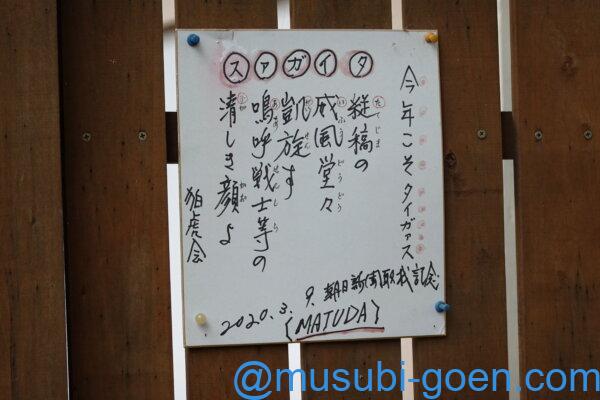 今年こそタイガァス
タイガァス
縦稿の
威風堂々
凱旋す
鳴呼戦士等の
清しき顔よ
狛虎会
2020.3.9.朝日新聞取材記念
(MATUDA)
@musubi-goen.com